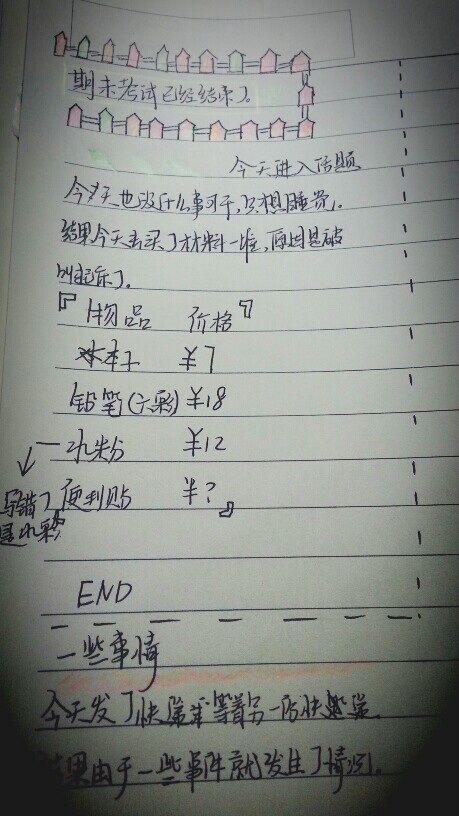 期末考试已经结束了。
今天进入话题
今天也没什么事可干,只想睡觉。
结果今天去买了材料一堆,原因是被
叫起床了。
『物品 价格』
本本 ¥7
铅笔(六彩) ¥18
水粉 ¥12
写错了
是水彩
便利贴 ¥?
END
一些事情
今天发了快递 等着另一历快递
结果由于一些事件就发生了情况。